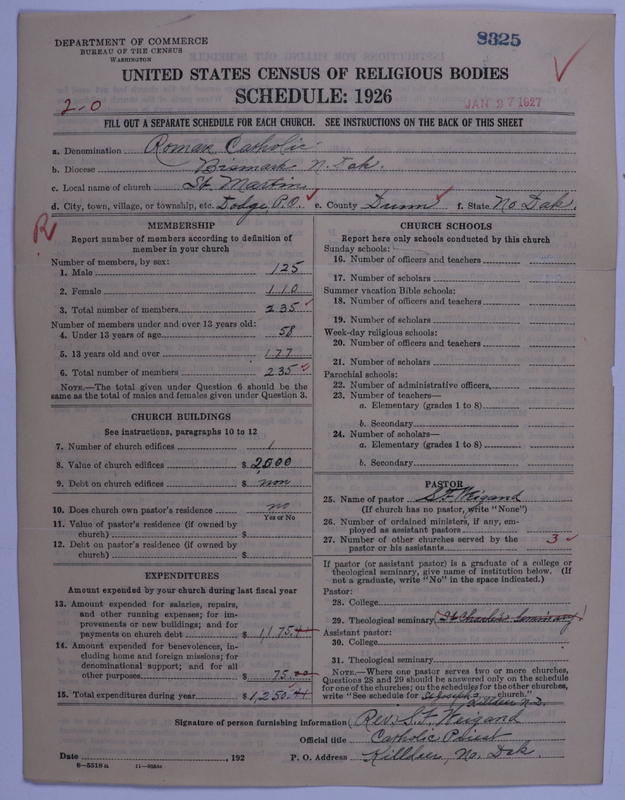 DEPARTMENT OF COMMERCE
BUREAU OF THE CENSUS
WASHINGTON
8325
UNITED STATES CENSUS OF RELIGIOUS BODIES
SCHEDULE: 1926
2-0
JAN 27 1927
FILL OUT A SEPARATE SCHEDULE FOR EACH CHURCH. SEE INSTRUCTIONS ON THE BACK OF THIS SHEET
a. Denomination Roman Catholic
b. Diocese Bismark N. Dak.
c. Local name of church St. Martins
d. City, town, village, or township, etc. Dodge, P.O. e. County Dunn f. State No Dak.
R
MEMBERSHIP
Report number of members according to definition of
member in your church
Number of members, by sex:
1. Male 125
2. Female 110
3. Total number of members 235
Number of members under and over 13 years old:
4. Under 13 years of age 58
5. 13 years old and over 177
6. Total number of members 235
NOTE.—The total given under Question 6 should be the
same as the total of males and females given under Question 3.
CHURCH BUILDINGS
See instructions, paragraphs 10 to 12
7. Number of church edifices 1
8. Value of church edifices $ 2000
9. Debt on church edifices $ non
10. Does church own pastor's residence no
Yes or No
11. Value of pastor's residence (if owned by
church) $
12. Debt on pastor's residence (if owned by
church) $
EXPENDITURES
Amount expended by your church during last fiscal year
13. Amount expended for salaries, repairs,
and other running expenses; for im-
provements or new buildings; and for
payments on church debt $ 1,175.41
14. Amount expended for benevolences, in-
cluding home and foreign missions; for
denominational support; and for all
other purposes $ 75.00
15. Total expenditures during year $ 1,250.41
CHURCH SCHOOLS
Report here only schools conducted by this church
Sunday schools:
16. Number of officers and teachers
17. Number of scholars
Summer vacation Bible schools:
18. Number of officers and teachers
19. Number of scholars
Week-day religious schools:
20. Number of officers and teachers
21. Number of scholars
Parochial schools:
22. Number of administrative officers,
23. Number of teachers—
a. Elementary (grades 1 to 8)
b. Secondary
24. Number of scholars—
a. Elementary (grades 1 to 8)
b. Secondary
PASTOR
25. Name of pastor S F Weigand
(If church has no pastor, write "None")
26. Number of ordained ministers, if any, em-
ployed as assistant pastors
27. Number of other churches served by the
pastor or his assistants 3
If pastor (or assistant pastor) is a graduate of a college or
theological seminary, give name of institution below. (If
not a graduate, write "No" in the space indicated.)
Pastor:
28. College
29. Theological seminary (St Charles Seminary)
Assistant pastor:
30. College
31. Theological seminary
NOTE.—Where one pastor serves two or more churches,
Questions 28 and 29 should be answered only on the schedule
for one of the churches; on the schedules for the other churches,
write "See schedule for St Josephs church."
Killdeer N.D.
Signature of person furnishing information Rev. S. F. Weigand
Official title Catholic Priest
Date , 192 P. O. Address Killdeer, No. Dak.
8-5518a 11-9388a